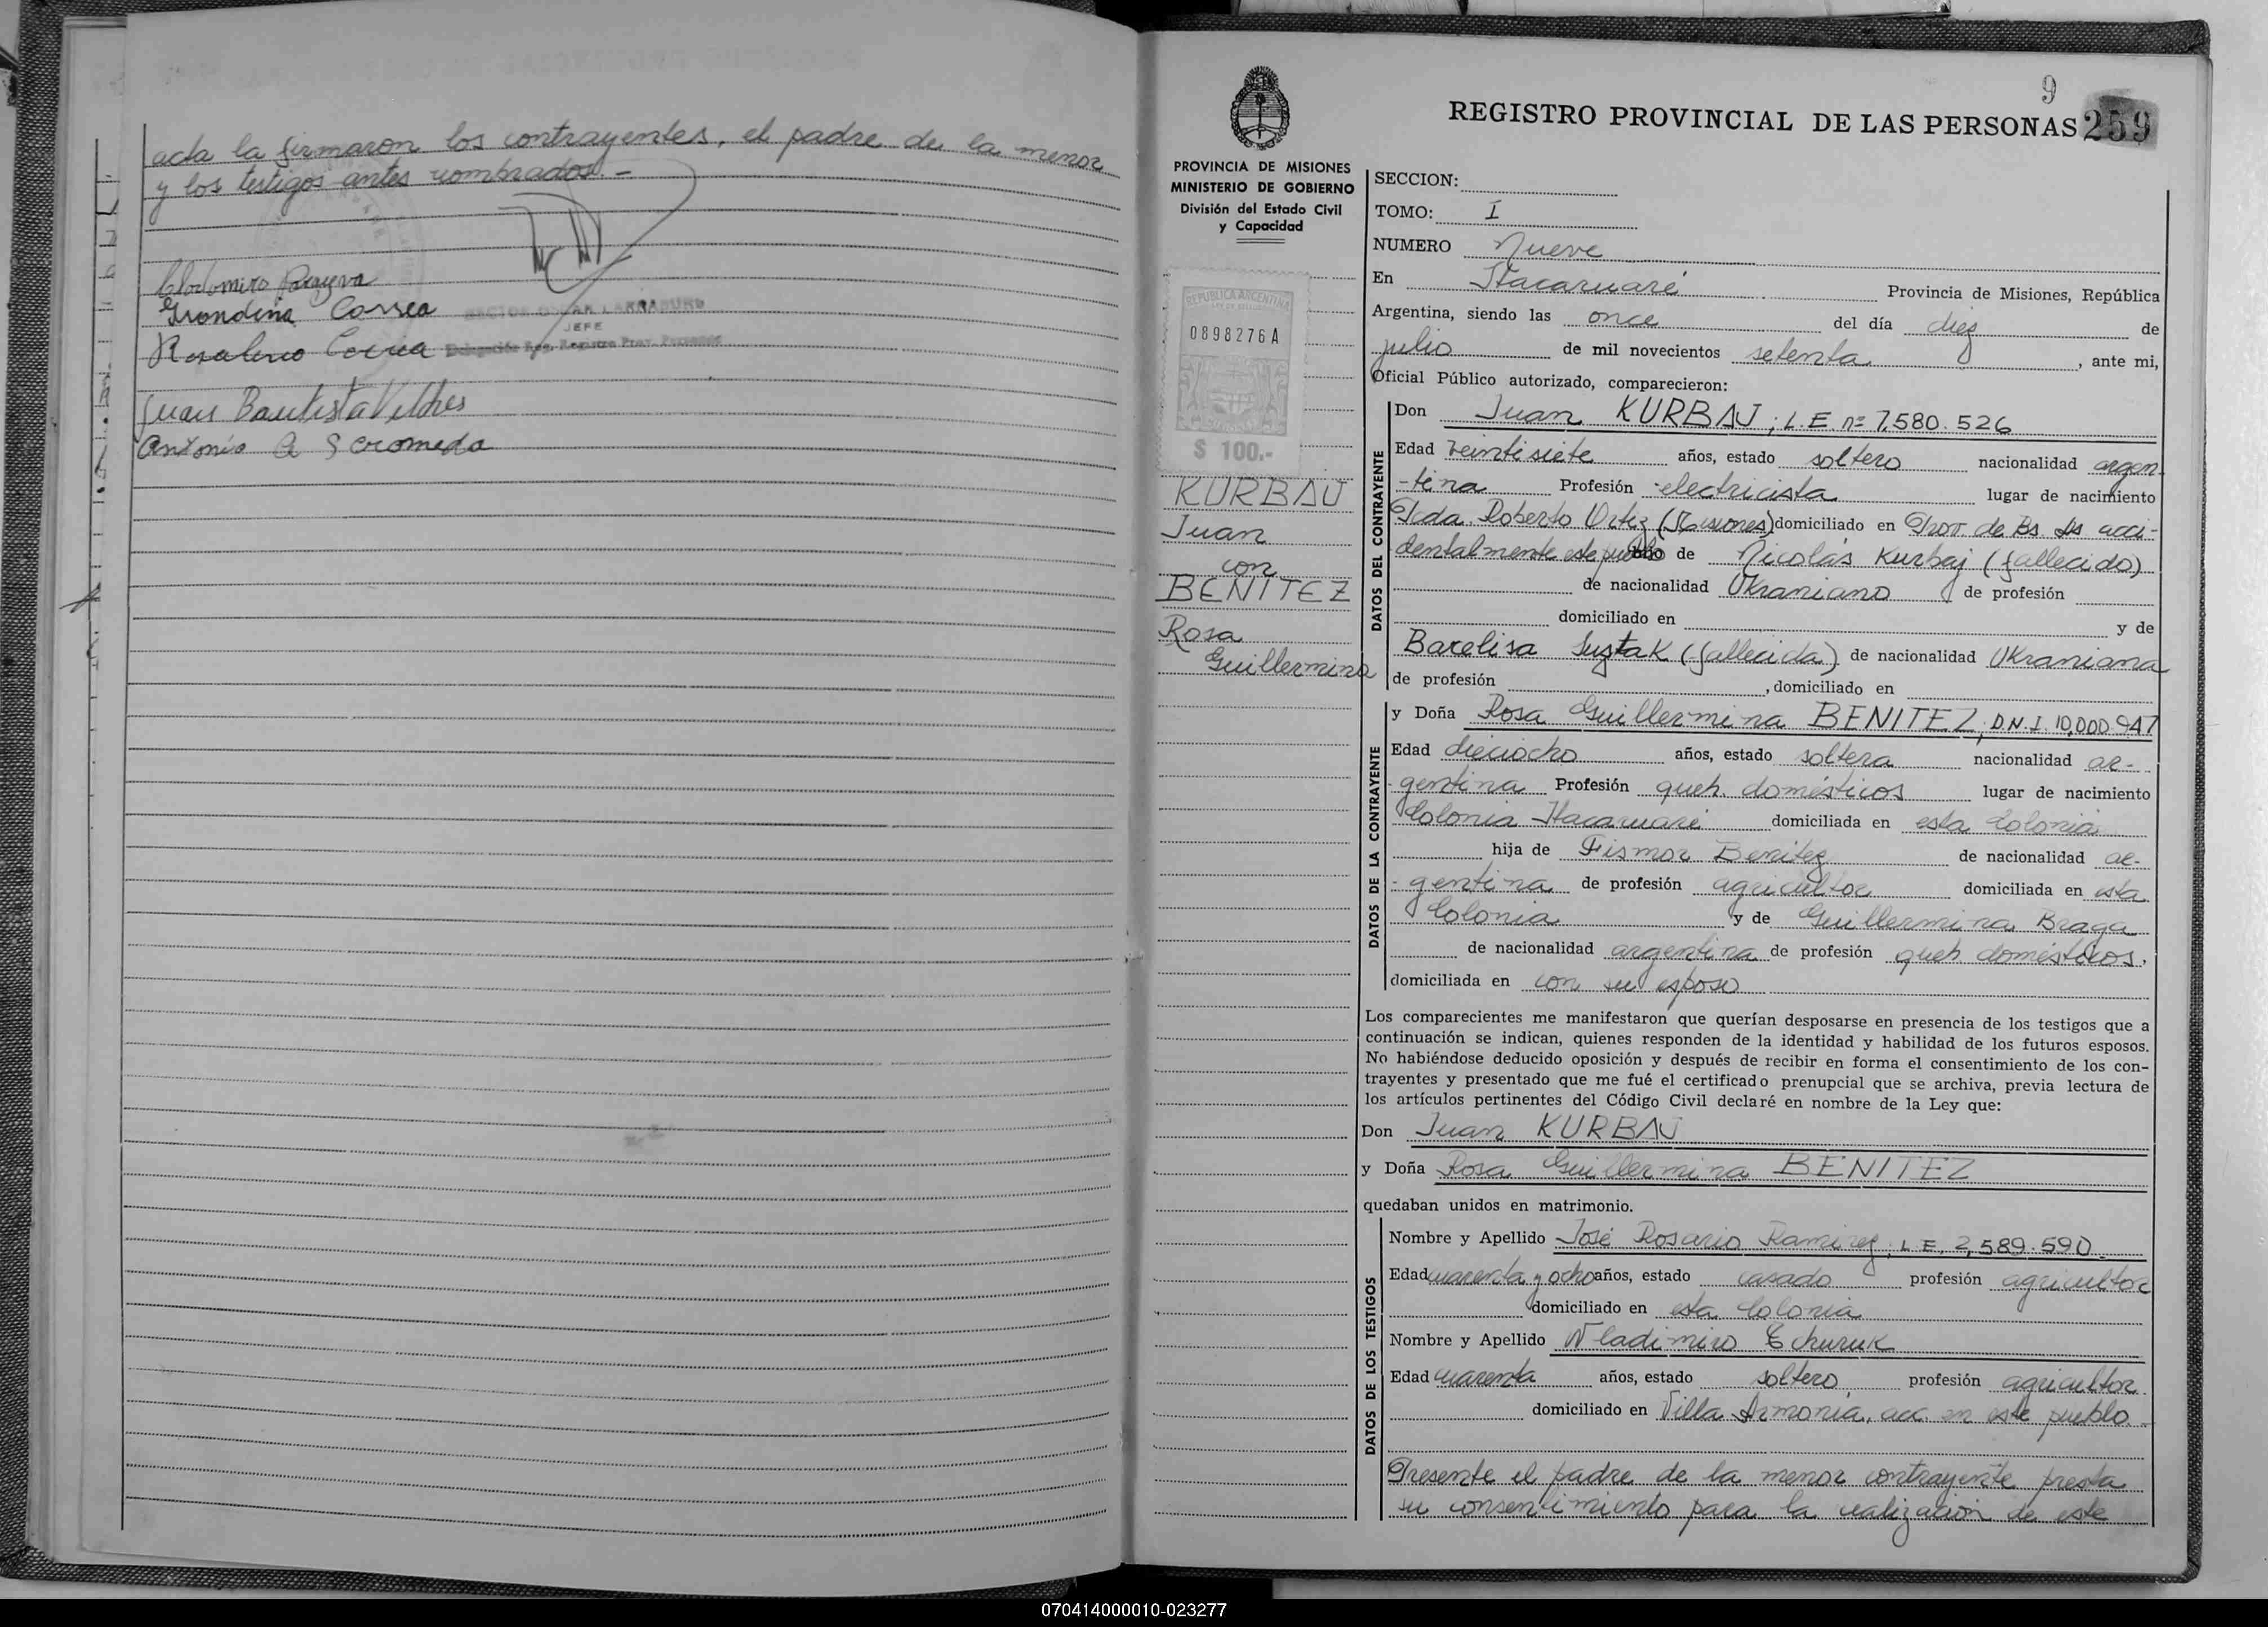 acta la firmaron los contrayentes, el padre de la menor
y los testigos antes nombrados. -
Clodomiro
Correa
HECTOR OSCAR LARRABURU
JEFE
Rosalino Correa
Delegación Reg. Registro Prov. Personas
Juan Bautista Vilches
Antonio A
9
REGISTRO PROVINCIAL DE LAS PERSONAS 259
PROVINCIA DE MISIONES
MINISTERIO DE GOBIERNO
División del Estado Civil
y Capacidad
REPUBLICA ARGENTINA
0898276A
$ 100.-
KURBAJ
Juan
con
BENITEZ
Rosa
Guillermina
SECCION:
TOMO: I
NUMERO Nueve
En Itacaruaré Provincia de Misiones, República
Argentina, siendo las once del día diez de
julio de mil novecientos setenta, ante mi,
Oficial Público autorizado, comparecieron:
DATOS DEL CONTRAYENTE
Don Juan KURBAJ; L.E. nº 7.580.526
Edad veintisiete años, estado soltero nacionalidad argen-
-tina Profesión electricista lugar de nacimiento
Pcda. Roberto Ortiz (Misiones) domiciliado en Prov. de Bs. As acci-
dentalmente este pueblo de Nicolás Kurbaj (fallecido)
de nacionalidad Ukraniano de profesión
domiciliado en y de
Barelisa (fallecida) de nacionalidad Ukraniana
de profesión , domiciliado en
DATOS DE LA CONTRAYENTE
y Doña Rosa Guillermina BENITEZ; D.N.I. 10,000.947
Edad dieciocho años, estado soltera nacionalidad ar-
-gentina Profesión queh. domésticos lugar de nacimiento
Colonia Itacaruaré domiciliada en esta Colonia
hija de Fismor Benítez de nacionalidad ar-
-gentina de profesión agricultor domiciliada en esta
Colonia y de Guillermina Braga
de nacionalidad argentina de profesión queh. domésticos,
domiciliada en con su esposo
Los comparecientes me manifestaron que querían desposarse en presencia de los testigos que a
continuación se indican, quienes responden de la identidad y habilidad de los futuros esposos.
No habiéndose deducido oposición y después de recibir en forma el consentimiento de los con-
trayentes y presentado que me fué el certificado prenupcial que se archiva, previa lectura de
los artículos pertinentes del Código Civil declaré en nombre de la Ley que:
Don Juan KURBAJ
y Doña Rosa Guillermina BENITEZ
quedaban unidos en matrimonio.
DATOS DE LOS TESTIGOS
Nombre y Apellido José Rosario Ramirez; L.E. 2,589.590
Edad cuarenta y ocho años, estado casado profesión agricultor
domiciliado en esta Colonia
Nombre y Apellido Wladimiro Echuruk
Edad cuarenta años, estado soltero profesión agricultor
domiciliado en Villa Armonía, acc. en este pueblo
Presente el padre de la menor contrayente presta
su consentimiento para la realización de este
070414000010-023277